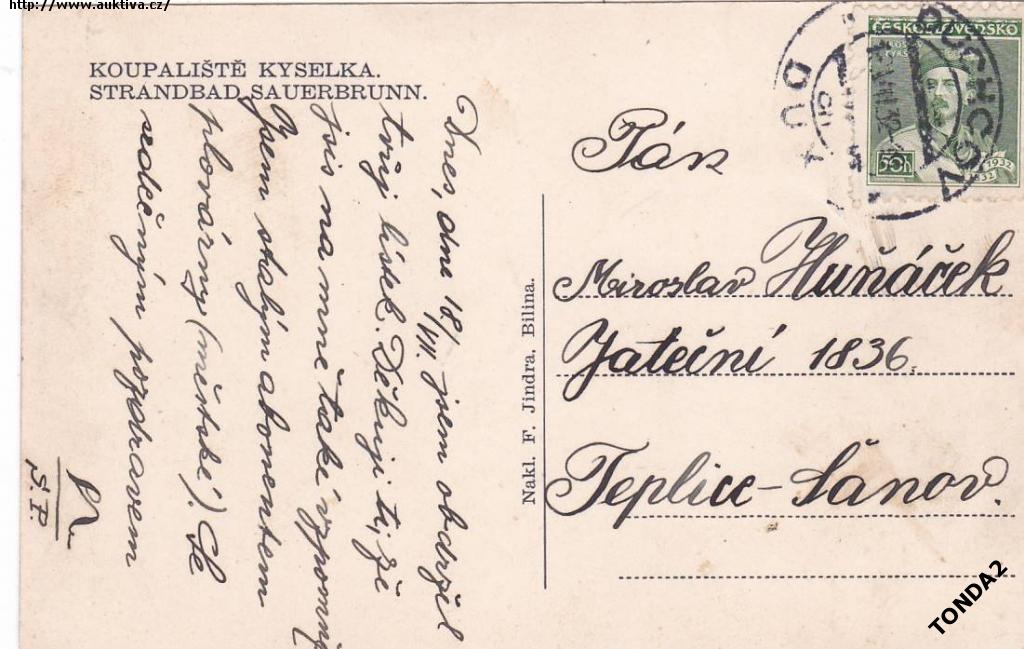 http://www.auktiva.cz/
KOUPALIŠTĚ KYSELKA.
STRANDBAD SAUERBRUNN.
Dnes, dne 18/VII. jsem obdržel
tvůj lístek. Děkuji ti, že
jsis na mne také vzpomněl
Jsem stalým abonentem
plovárny (městské). Se
srdečným pozdravem
S. P.
Nakl. F. Jindra, Bilina.
ČESKOSLOVENSKO
50h
1932
DUCHCOV
DUX
Pán
Miroslav Huňáček
Jateční 1836.
Teplice-Šánov.
TONDA2